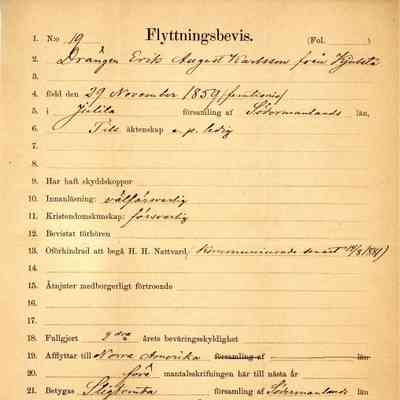 1. N:o 19 Flyttningsbevis. (Fol. )
2. Drängen Erik August Karlsson från Hjulsta
3.
4. född den 29 November 1859
5. i Julita församling af Södermanlands län,
6. Till äktenskap led­ig
7.
8.
9. Har haft skyddskoppor
10. Innanläsning: välförsvarlig
11. Kristendomskunskap: försvarlig
12. Bevistat förhören
13. Oförhindrad att begå H. H. Nattvard, kommunicerade senast
14.
15. Åtnjuter medborgerligt förtroende
16.
17.
18. Fullgjort 2dra årets beväringsskyldighet
19. Afflyttar till Norra Amerika församling af län
20. före mantalsskrifningen här till nästa år
21. Betygas Stigtomta församling af Södermanlands län